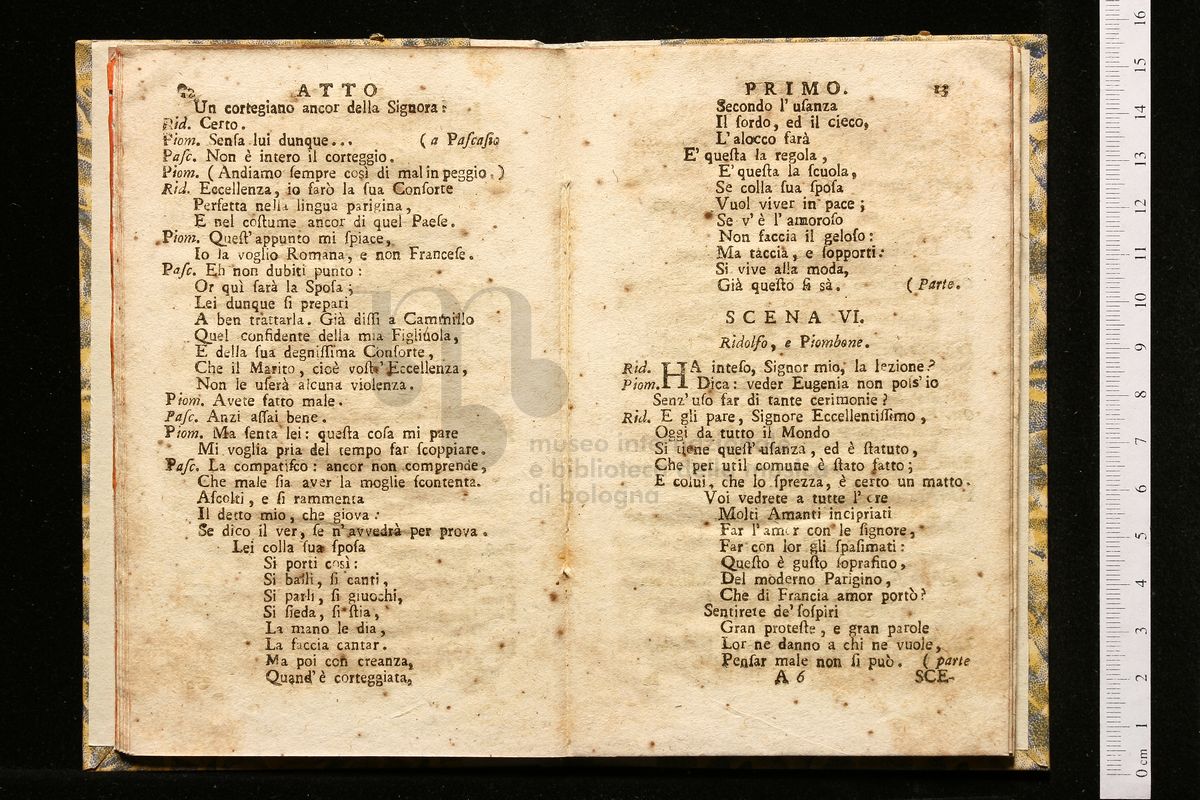 ATTO
Un cortegiano ancor della Signora:
Rid. Certo.
Piom. Senſa lui dunque... (a Paſcaſio
Paſc. Non è intero il corteggio.
Piom. (Andiamo ſempre così di mal in peggio.)
Rid. Eccellenza, io farò la ſua Conſorte
Perfetta nella lingua parigina,
E nel coſtume ancor di quel Paeſe.
Piom. Queſt'appunto mi ſpiace,
Io la voglio Romana, e non Franceſe.
Paſc. Eh non dubiti punto:
Or quì farà la Spoſa;
Lei dunque ſi prepari
A ben trattarla. Già diſſi a Cammillo
Quel confidente della mia Figliuola,
E della ſua degniſſima Conſorte,
Che il Marito, cioè voſt'Eccellenza,
Non le uſerà alcuna violenza.
Piom. Avete fatto male.
Paſc. Anzi aſſai bene.
Piom. Ma ſenta lei: queſta coſa mi pare
Mi voglia pria del tempo far ſcoppiare.
Paſc. La compatiſco: ancor non comprende,
Che male ſia aver la moglie ſcontenta.
Aſcolti, e ſi rammenta
Il detto mio, che giova:
Se dico il ver, ſe n'avvedrà per prova.
Lei colla ſua ſpoſa
Si porti così:
Si balli, ſi canti,
Si parli, ſi giuochi,
Si ſieda, ſi ſtia,
La mano le dia,
La faccia cantar.
Ma poi con creanza,
Quand'è corteggiata,
PRIMO. 13
Secondo l'uſanza
Il ſordo, ed il cieco,
L'alocco farà
E' queſta la regola,
E' queſta la ſcuola,
Se colla ſua ſpoſa
Vuol viver in pace;
Se v'è l'amoroſo
Non faccia il geloſo:
Ma taccia, e ſopporti:
Si vive alla moda,
Già queſto ſi sà. (Parte.
SCENA VI.
Ridolfo, e Piombone.
Rid. HA inteſo, Signor mio, la lezione?
Piom. Dica: veder Eugenia non poſs'io
Senz'uſo far di tante cerimonie?
Rid. E gli pare, Signore Eccellentiſſimo,
Oggi da tutto il Mondo
Si tiene queſt'uſanza, ed è ſtatuto,
Che per util comune è ſtato fatto;
E colui, che lo ſprezza, è certo un matto.
Voi vedrete a tutte l'ore
Molti Amanti incipriati
Far l'amor con le ſignore,
Far con lor gli ſpaſimati:
Queſto è guſto ſoprafino,
Del moderno Parigino,
Che di Francia amor portò?
Sentirete de'ſoſpiri
Gran proteſte, e gran parole
Lor ne danno a chi ne vuole,
Penſar male non ſi può. (parte
A 6 SCE-
museo internazionale
e biblioteca della musica
di bologna
0 cm 1 2 3 4 5 6 7 8 9 10 11 12 13 14 15 16